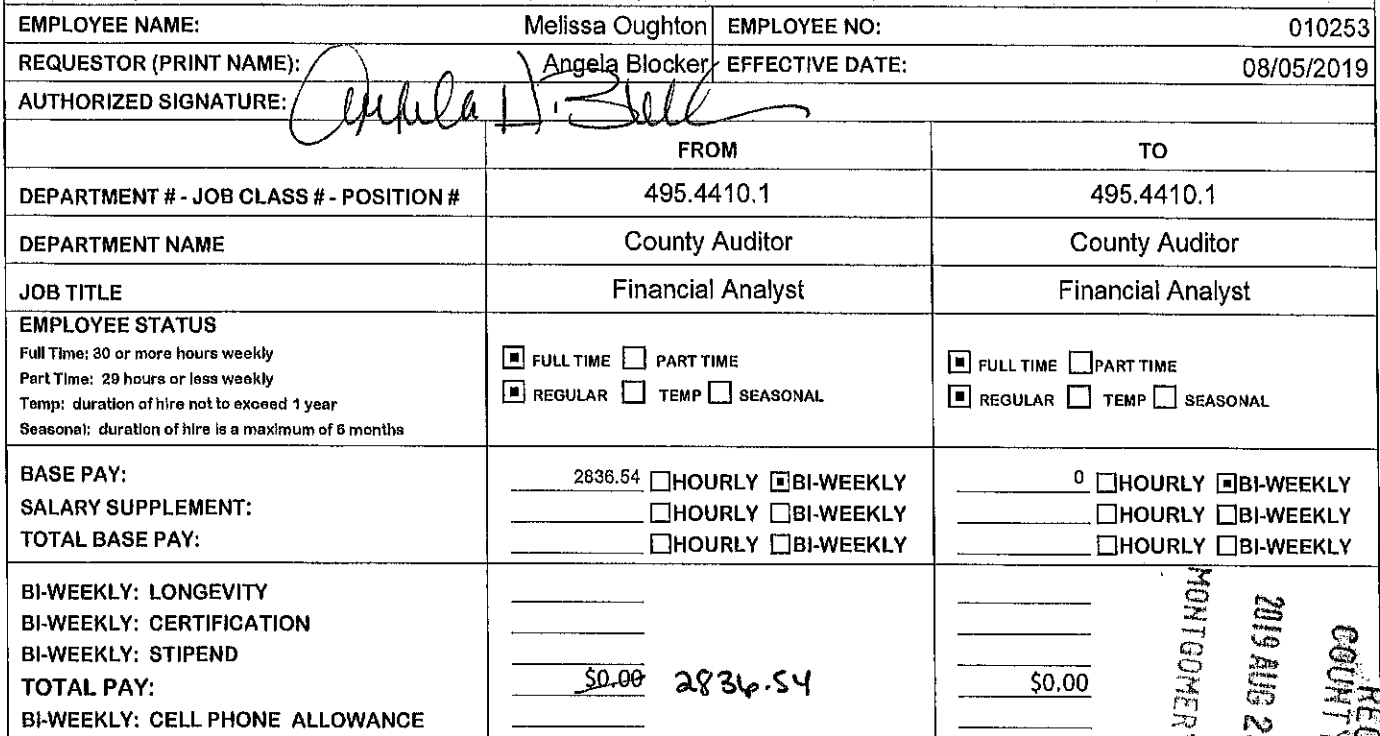 EMPLOYEE NAME: Melissa Oughton EMPLOYEE NO: 010253
REQUESTOR (PRINT NAME): Angela Blocker EFFECTIVE DATE: 08/05/2019
AUTHORIZED SIGNATURE:
FROM TO
DEPARTMENT # - JOB CLASS # - POSITION # 495.4410.1 495.4410.1
DEPARTMENT NAME County Auditor County Auditor
JOB TITLE Financial Analyst Financial Analyst
EMPLOYEE STATUS
Full Time: 30 or more hours weekly
Part Time: 29 hours or less weekly
Temp: duration of hire not to exceed 1 year
Seasonal: duration of hire is a maximum of 6 months
FULL TIME PART TIME
REGULAR TEMP SEASONAL
FULL TIME PART TIME
REGULAR TEMP SEASONAL
BASE PAY: 2836.54 HOURLY BI-WEEKLY 0 HOURLY BI-WEEKLY
SALARY SUPPLEMENT: HOURLY BI-WEEKLY HOURLY BI-WEEKLY
TOTAL BASE PAY: HOURLY BI-WEEKLY HOURLY BI-WEEKLY
BI-WEEKLY: LONGEVITY
BI-WEEKLY: CERTIFICATION
BI-WEEKLY: STIPEND
TOTAL PAY: $0.00 2836.54 $0.00
BI-WEEKLY: CELL PHONE ALLOWANCE
REC
COUNT
2019 AUG 2
MONTGOMER